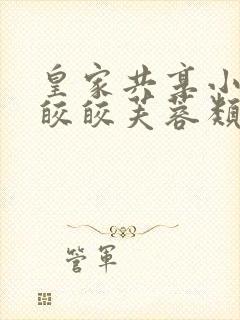 皇家共享小
皎皎芙蓉类
管军